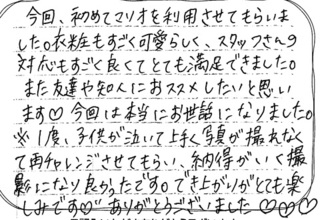 今回、初めてマリオを利用させてもらいま
した。衣装もすごく可愛らしく、スタッフさんの
対応もすごく良くてとても満足できました。
また友達や知人におススメしたいと思い
ます♡今回は本当にお世話になりました。
※1度、子供が泣いて上手く写真が撮れなく
て再チャレンジさせてもらい、納得がいく撮
影になり良かったです。でき上がりがとても楽
しみです♡ありがとうございました♡♡♡